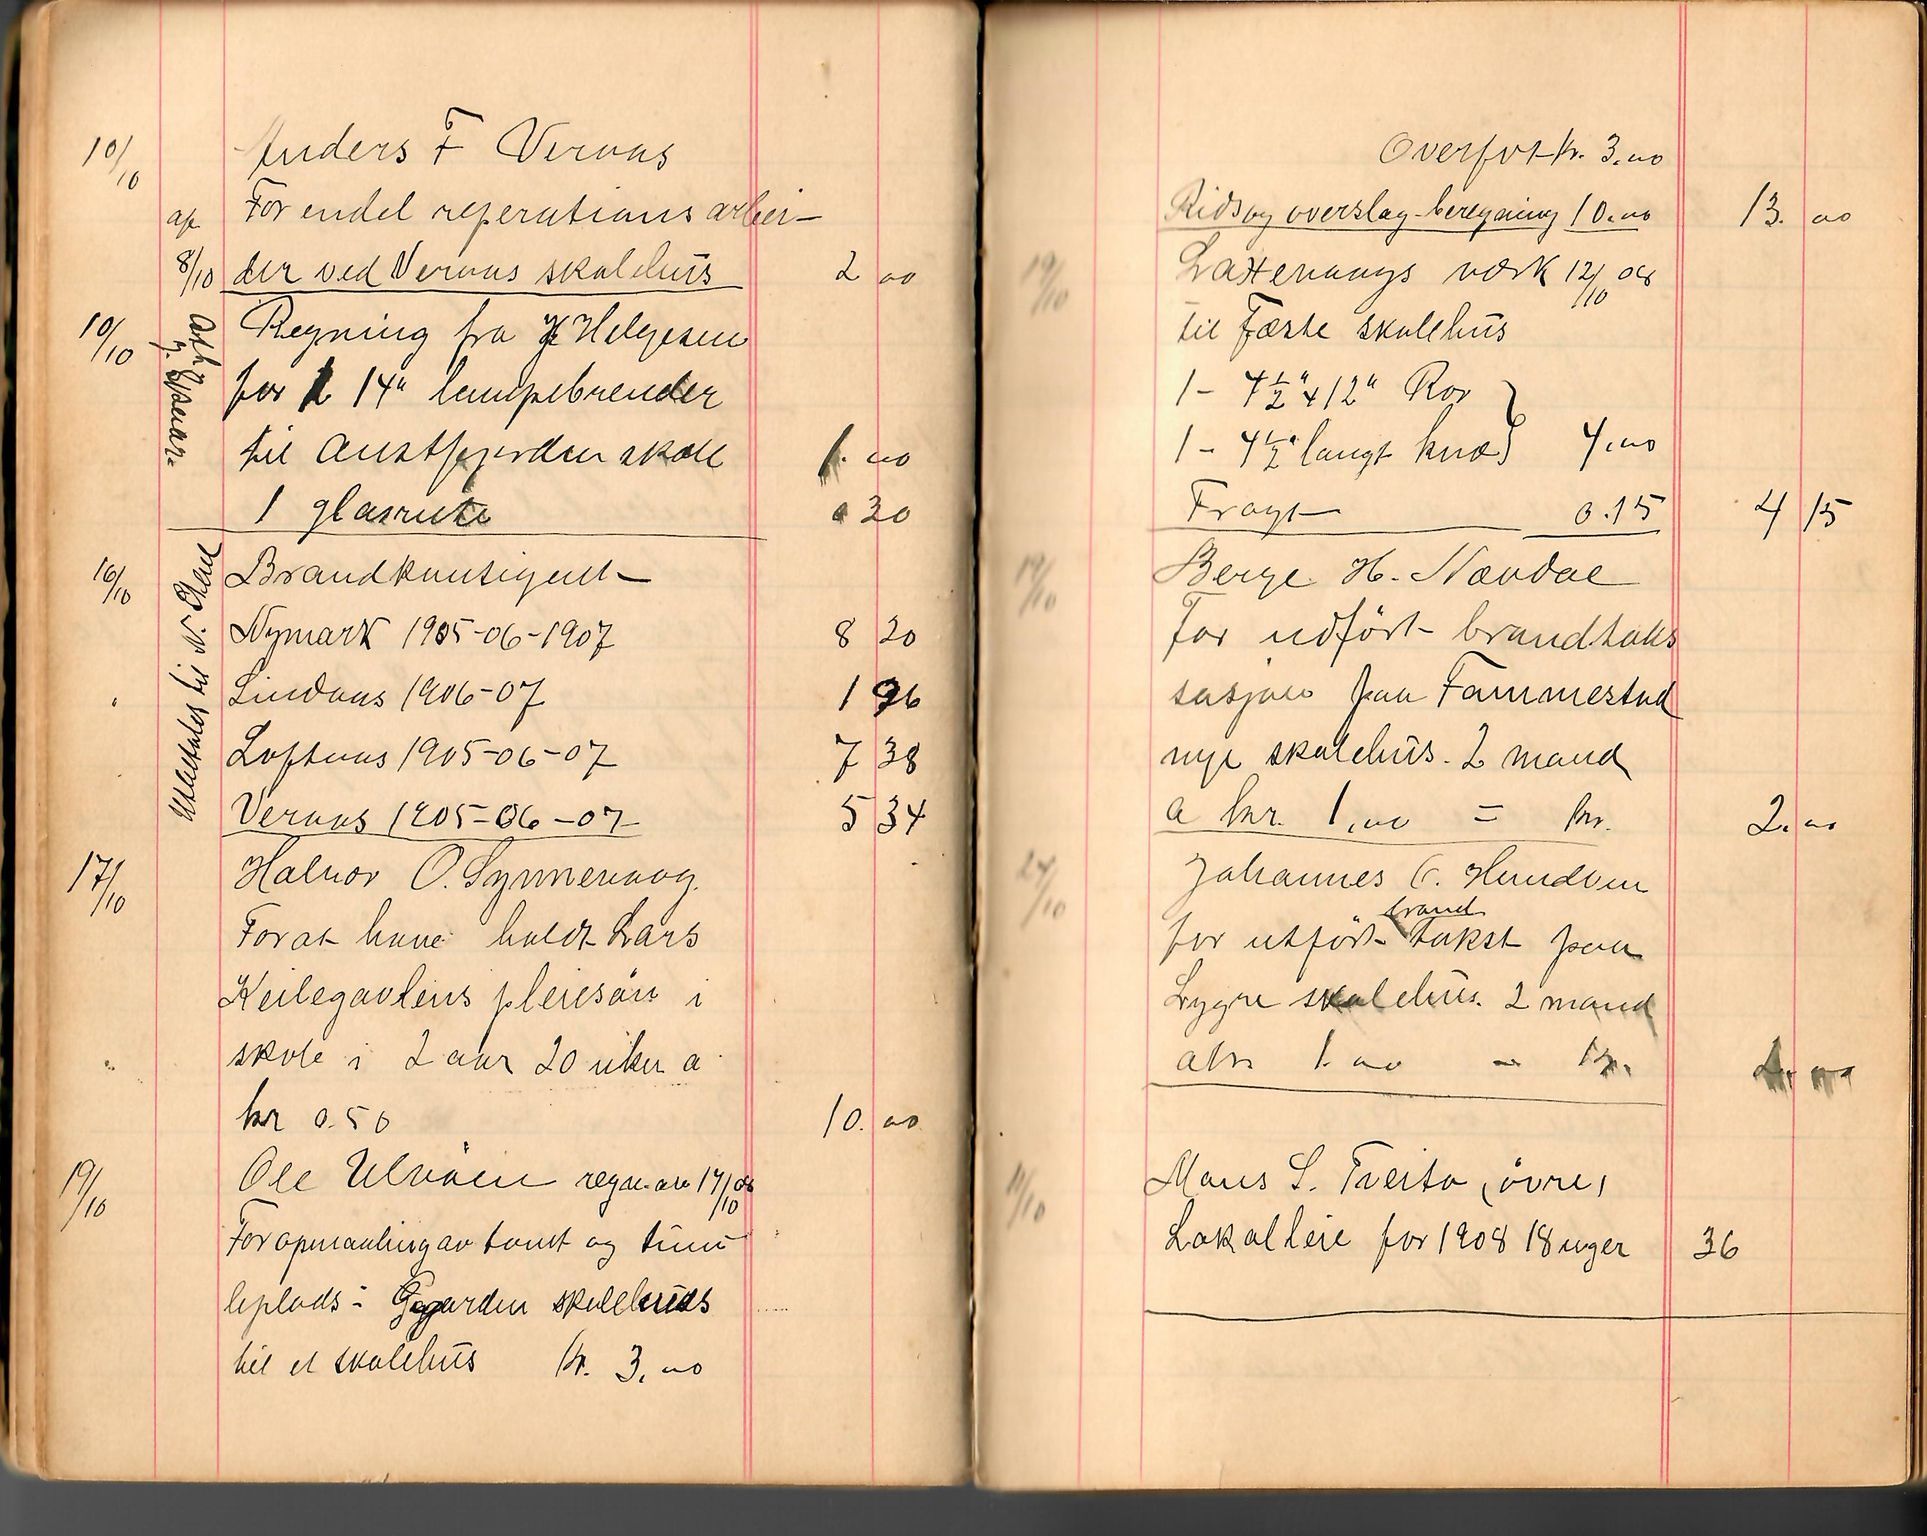 10/10 Anders F Vervaas
For endel reperations arbei-
af 8/10 der ved Vervaas skolehus 2 00
10/10 Regning fra Helgesen
for 14" lampebrender
til Austfjorden skole 1. 00
1 glasrute 0 30
16/10 Brandkontigent
Utbetalet til N.
Nymark 1905-06-1907 8 20
Lindaas 1906-07 1 96
Loftaas 1905-06-07 7 38
Vervaas 1905-06-07 5 34
17/10 Halvor O. Synnevaag.
For at have holdt Lars
Keilegavlens pleiesøn i
skole i 2 aar 20 uker a
kr 0.50 10. 00
19/10 Ole Ulvøen regn. av 17/10 08
For opmaaling av tomt og tum
leplads i skolekreds
til et skolehus kr. 3.00
Overført kr. 3.00
Rids og overslag-beregning 10.00 13. 00
19/10 Laxevaags værk 12/10 08
til Fæste skolehus
1 - 4½" x 12" Rør
1 - 4½" langt knæ 4.00
Fragt 0.15 4 15
19/10 Berge H. Nævdal
For udført brandtaks
sasjon paa Fammestad
nye skolehus. 2 mand
a kr. 1.00 = kr. 2.00
24/10 Johannes Hundven
for utført brand takst paa
Lygre skolehus. 2 mand
a kr. 1.00 = kr. 2.00
11/10 Mons S. Tveito (øvre)
Lokalleie for 1908 18 uger 36